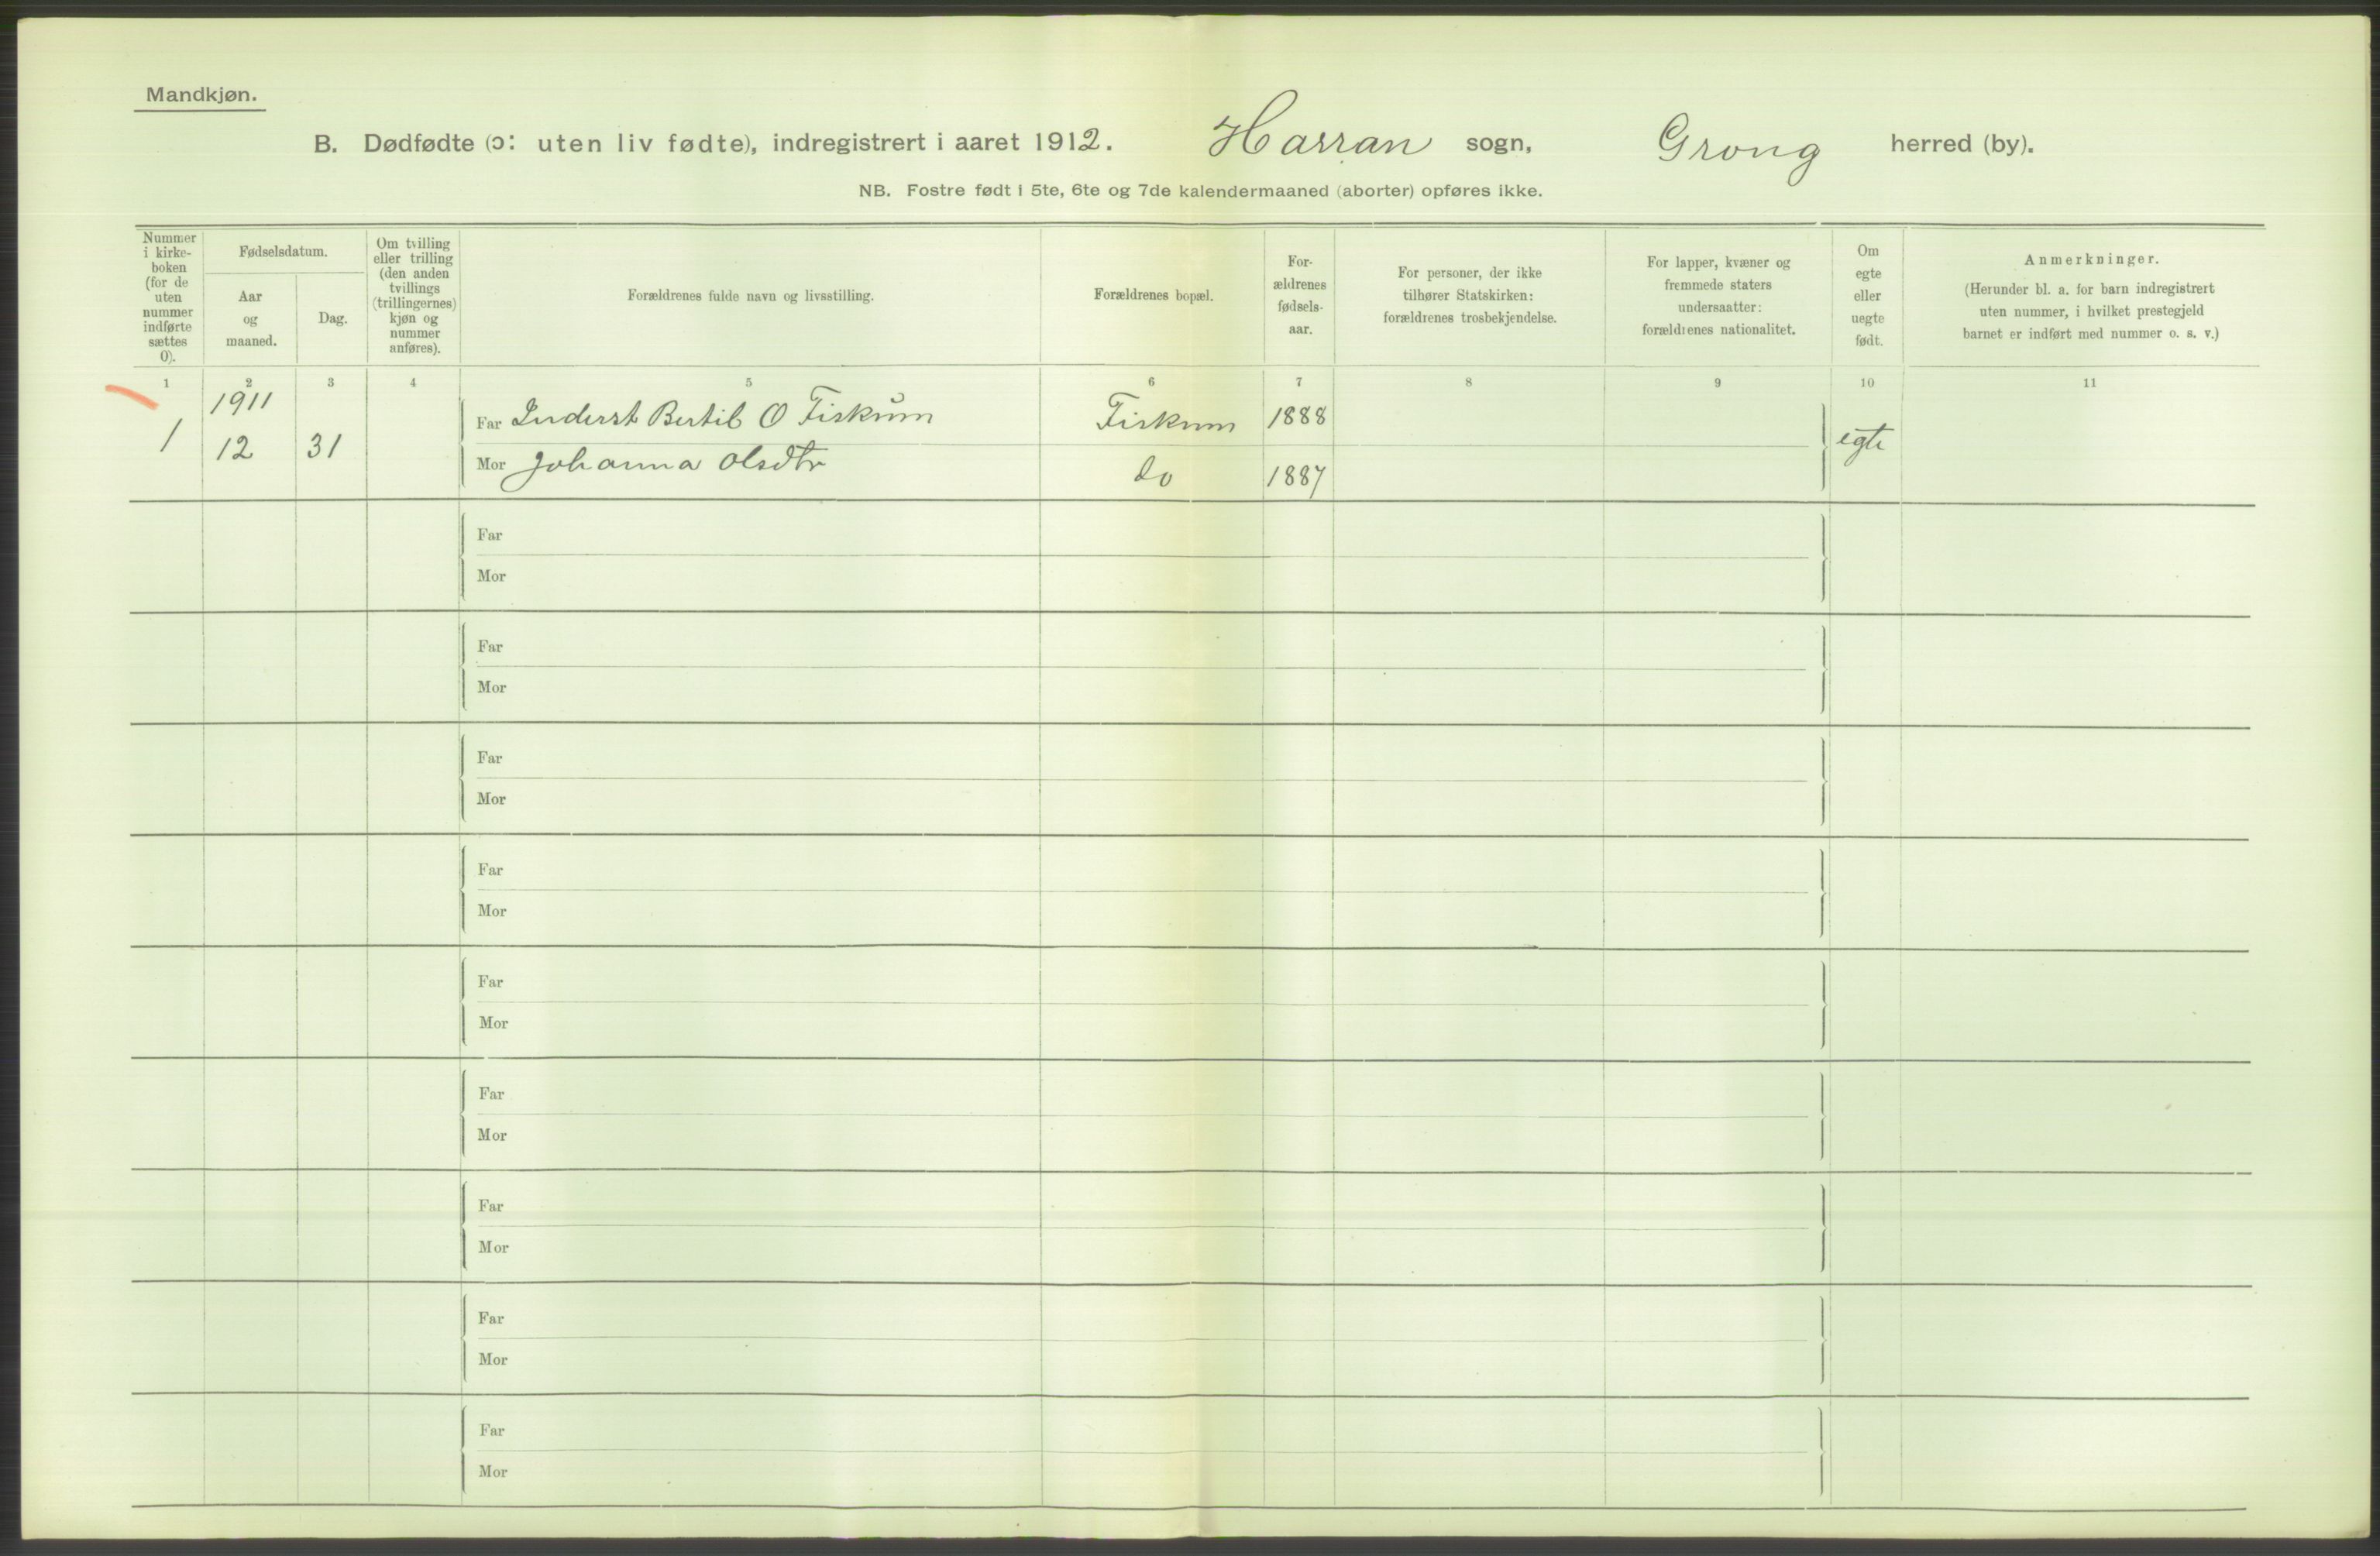 Mandkjøn.
B. Dødfødte (ɔ: uten liv fødte), indregistrert i aaret 1912. Harran sogn, Grong herred (by).
NB. Fostre født i 5te, 6te og 7de kalendermaaned (aborter) opføres ikke.
Nummer
i kirke-
boken
(for de
uten
nummer
indførte
sættes
0).
Fødselsdatum.
Aar
og
maaned.
Dag.
Om tvilling
eller trilling
(den anden
tvillings
(trillingernes)
kjøn og
nummer
anføres).
Forældrenes fulde navn og livsstilling.
Forældrenes bopæl.
For-
ældrenes
fødsels-
aar.
For personer, der ikke
tilhører Statskirken:
forældrenes trosbekjendelse.
For lapper, kvæner og
fremmede staters
undersaatter:
forældrenes nationalitet.
Om
egte
eller
uegte
født.
Anmerkninger.
(Herunder bl. a. for barn indregistrert
uten nummer, i hvilket prestegjeld
barnet er indført med nummer o. s. v.)
1 2 3 4 5 6 7 8 9 10 11
1911
Far Inderst Bertil O Fiskum Fiskum 1888
1 12 31 egte
Mor Johanna Olsdtr do 1887
Far
Mor
Far
Mor
Far
Mor
Far
Mor
Far
Mor
Far
Mor
Far
Mor
Far
Mor
Far
Mor